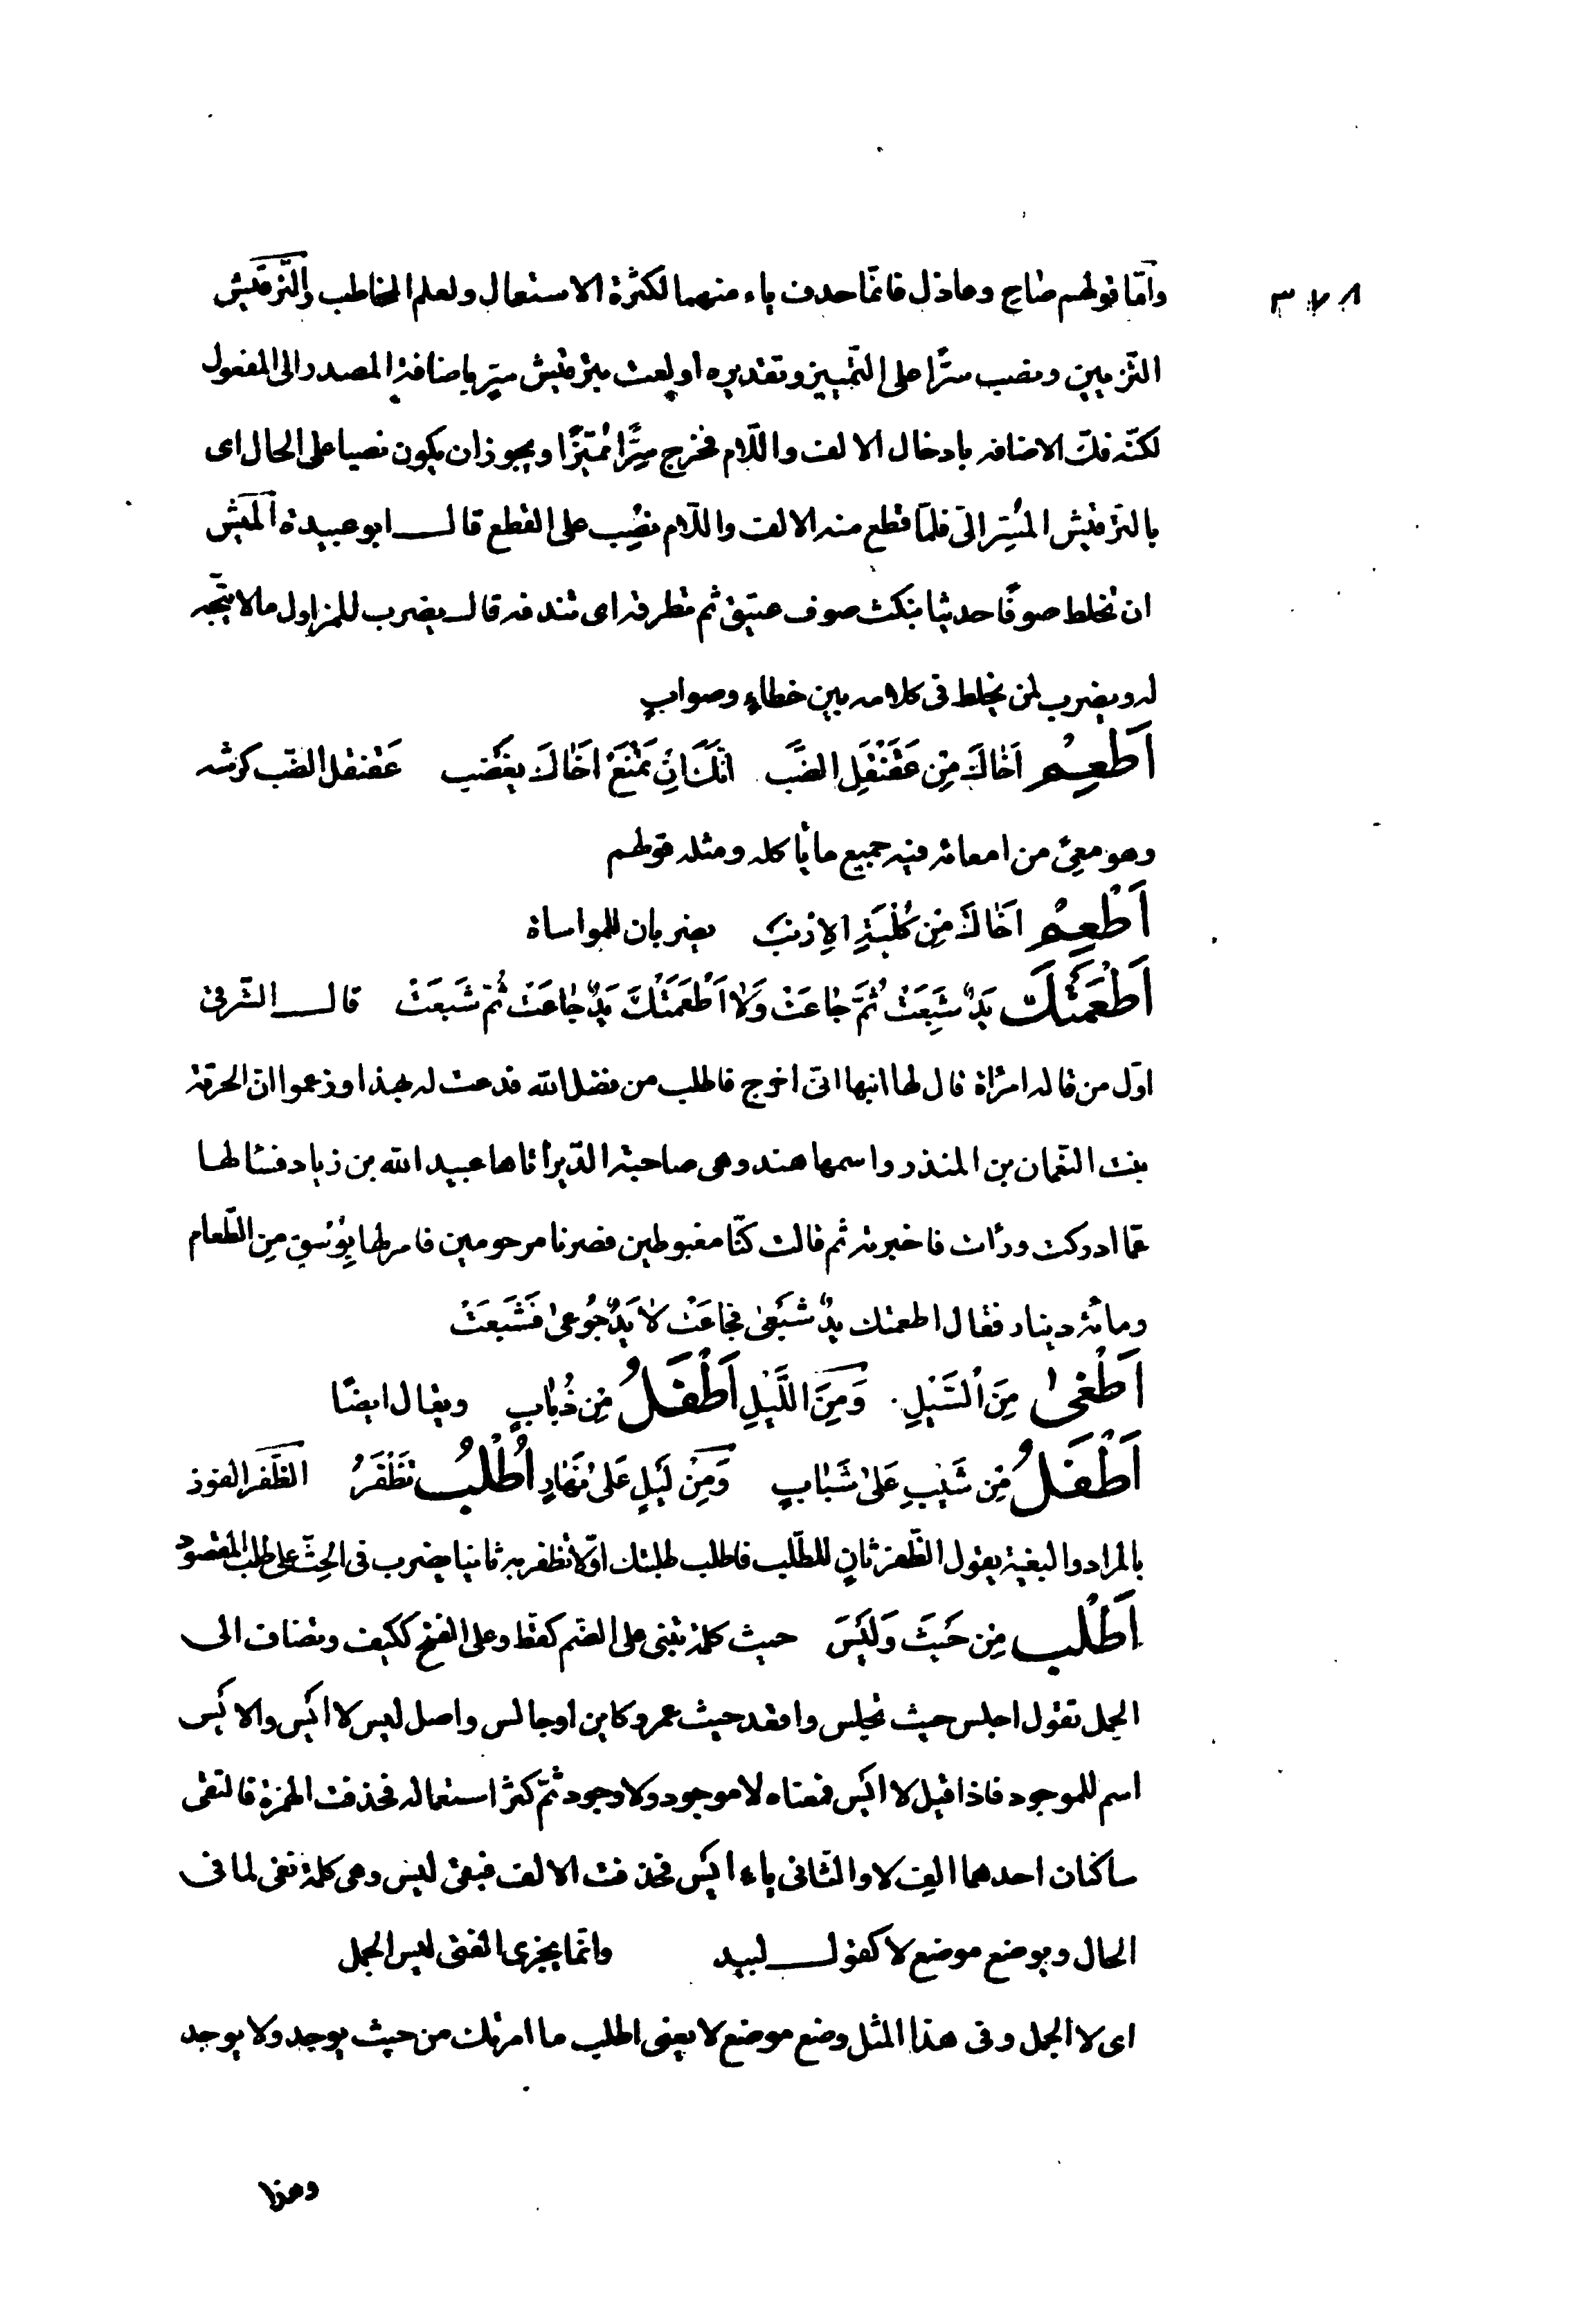 ٣٧٨
وامّا قولهم صاحِ وعاذل فانّما حذف ياء منهما لكثرة الاستعمال ولعلم المخاطب والتّرقيش
التّزيين ونصب سرًّا على التّمييز وتقديره اولعت بترقيش سِرٍّ باضافة المصدر الى المفعول
لكنّه فكّ الاضافه بادخال الالف واللّام فخرج سِرًّا مُمَيّزًا ويجوز ان يكون نصبا على الحال اى
بالترقيش المُسِرّ الىّ فلمّا قطع منه الالف واللّام نصُِب على القطع قال ابو عبيدة المَيش
ان تخلط صوفًا حديثا بنكث صوف عتيق ثم تطرقه اى تندفه قال يضرب للمزاول ما لا يتّجه
له ويضرب لمن يخلط فى كلامه بين خطاءٍ وصوابٍ
اَطْعِمْ اَخَاكَ مِن عَقَنْقَلِ الضَّبِّ انّكَ اِنْ تَمْنَعْ اَخَاكَ يغَضَب عَقنقل الضّب كرشه
وهو معىً من امعائه فيه جميع ما يأكله ومثله قولهم
اَطْعِمْ اَخَاكَ مِن كُلْيَةِ الاَرْنَبِ يضربان للمواساة
اَطْعَمَتْكَ يَدٌ شَبِعَتْ ثُمَّ جَاعَتْ وَلَا اَطْعَمَتْكَ يَدٌ جَاعَتْ ثُمّ شَبعَتْ قال الشّرقى
اوّل من قاله امرأة قال لها ابنها انّى اخرج فاطلب من فضل الله فدعت له بهذا وزعموا انّ الحرقة
بنت النّعمان بن المنذر واسمها هند وهى صاحبة الدّير أتاها عبيد الله بن زياد فسئالها
عمّا ادركت ورأت فاخبرته ثم قالت كنّا مغبوطين فصرنا مرحومين فامر لها بِوَسْقٍ مِن الطّعام
ومائة دينار فقال اطعمتك يدٌ شَبْعَىٰ فجَاعَتْ لَا يَدٌ جُوعىٰ فَشَبعَتْ
اَطْغىٰ مِنَ السَّيْلِ وَمِنَ اللَّيْلِ اَطْفَلُ مِن ذُبَابٍ ويقال ايضًا
اَطْفَلُ مِن شَيْبٍ عَلىٰ شَبَابٍ وَمِنْ لَيْلٍ عَلىٰ نَهَارٍ اُطْلُبْ تَظْفَرْ الظّفر الفوز
بالمراد والبغية يقول الظّفر ثانٍ للطّلب فاطلب طلبتك اوّلا تظفر به ثانيا يضرب فى الحثّ على طلب المقصود
اَطْلُب مِن حَيْثَ وَلَيْسَ حيث كلمة تبنى على الضّم كقطّ وعلى الفتح ككيف وتضاف الى
الجمل تقول اجلس حيث تجلس واقعد حيث عمرو كاين او جالس واصل ليس لا اَيْس والايس
اسم للموجود فاذا قيل لا ايَس فمعناه لا موجود ولا وجود ثمّ كثر استعماله فحذفت الهمزة فالتقى
ساكنان احدهما الف لا والثّانى ياء ايَس فحذفت الالف فبقى ليس وهى كلمة نفى لما فى
الحال ويوضع موضع لا كقول لبيد وانّما يجزى الفتى ليس الجمل
اى لا الجمل وفى هذا المثل وضع موضع لا يعنى اطلب ما امرتك من حيث يوجد ولا يوجد
وهذا